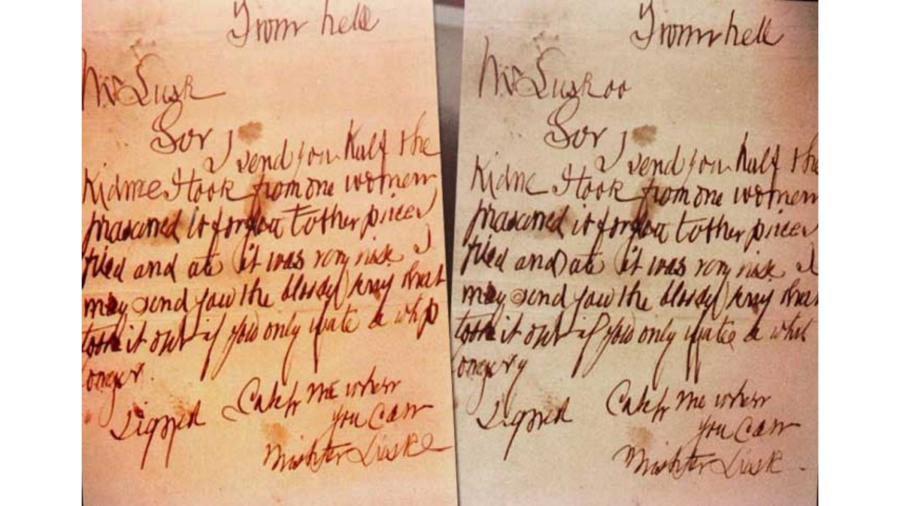 From hell
Mr Lusk
Sor
I send you half the
Kidne I took from one women
prasarved it for you tother piece I
fried and ate it was very nise I
may send you the bloody knif that
took it out if you only wate a whil
longer.
Signed Catch me when
you Can
Mishter Luske
From hell
Mr Luskoo
Sor
I send you half the
Kidne I took from one women
prasarved it for you tother piece I
fried and ate it was very nise I
may send you the bloody knif that
took it out if you only wate a whil
longer
Signed Catch me when
you Can
Mishter Lusk